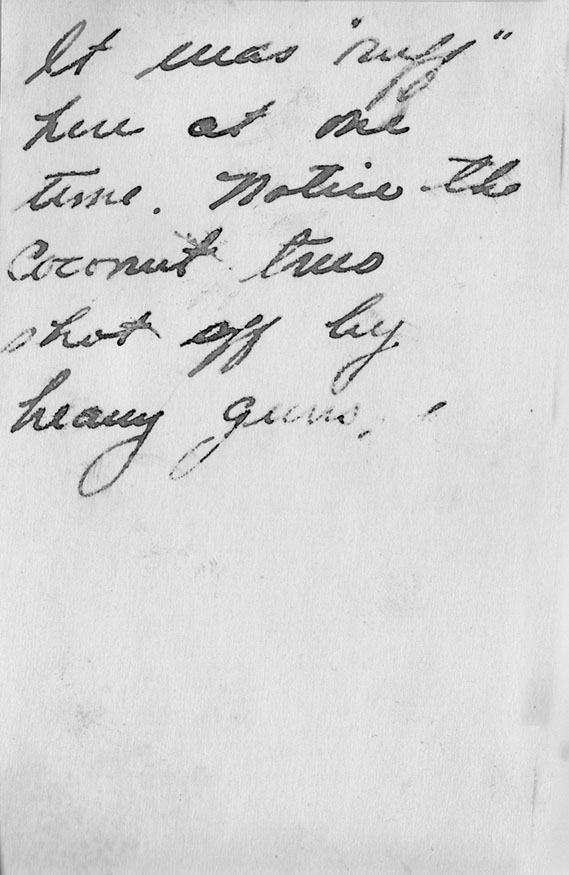 It was "ruff"
here at one
time. Notice the
Coconut trees
shot off by
heavy guns.